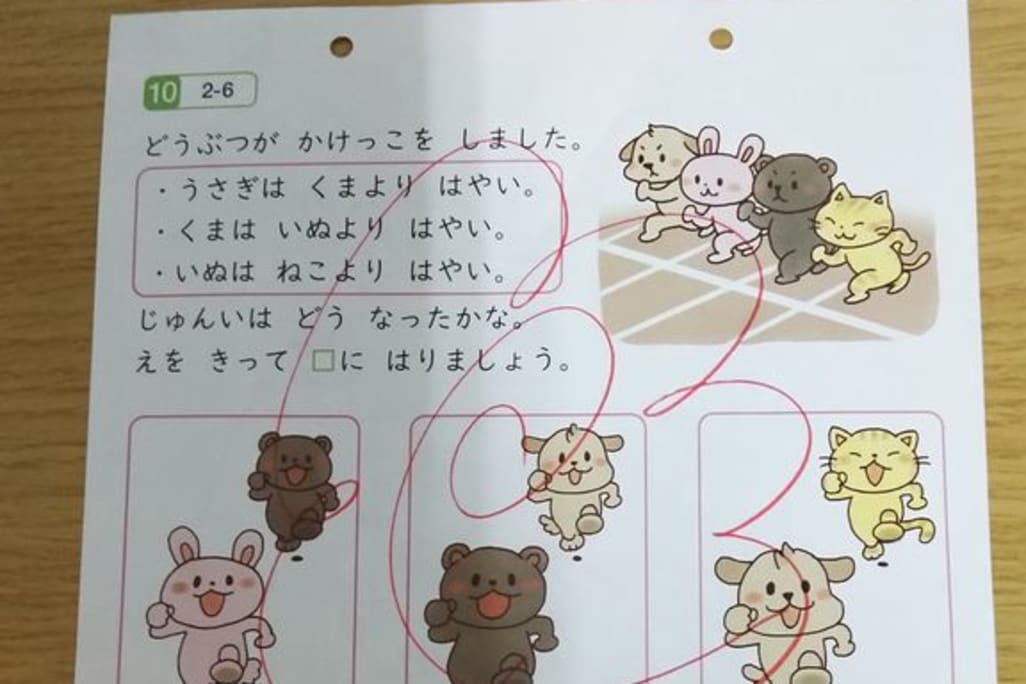 10 2-6
どうぶつが かけっこを しました。
・うさぎは くまより はやい。
・くまは いぬより はやい。
・いぬは ねこより はやい。
じゅんいは どう なったかな。
えを きって □に はりましょう。